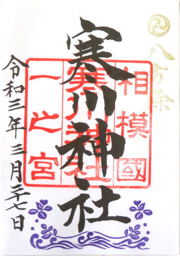 八方除
相模國
一之宮
寒川神社
寒川神社
令和三年三月二七日